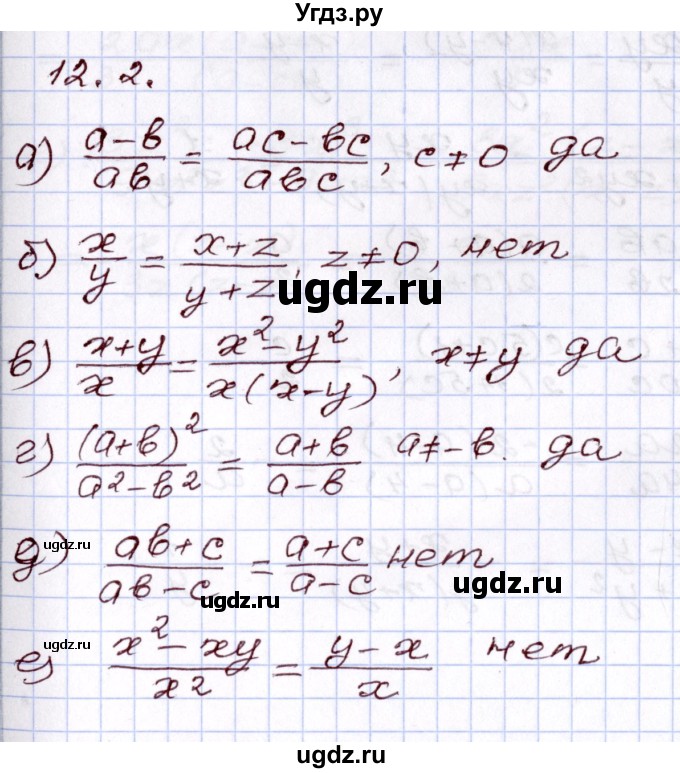 Угдз.ру
12.2.
а) (a-b)/(ab) = (ac-bc)/(abc), c≠0 да
б) x/y = (x+z)/(y+z), z≠0, нет
ugdz.ru
в) (x+y)/x = (x²-y²)/(x(x-y)), x≠y да
г) (a+b)²/(a²-b²) = (a+b)/(a-b) a≠-b. да
ugdz.ru
д) (ab+c)/(ab-c) = (a+c)/(a-c) нет
ugdz.ru ugdz.ru
е) (x²-xy)/x² = (y-x)/x нет
ugdz.ru
ugdz.ru